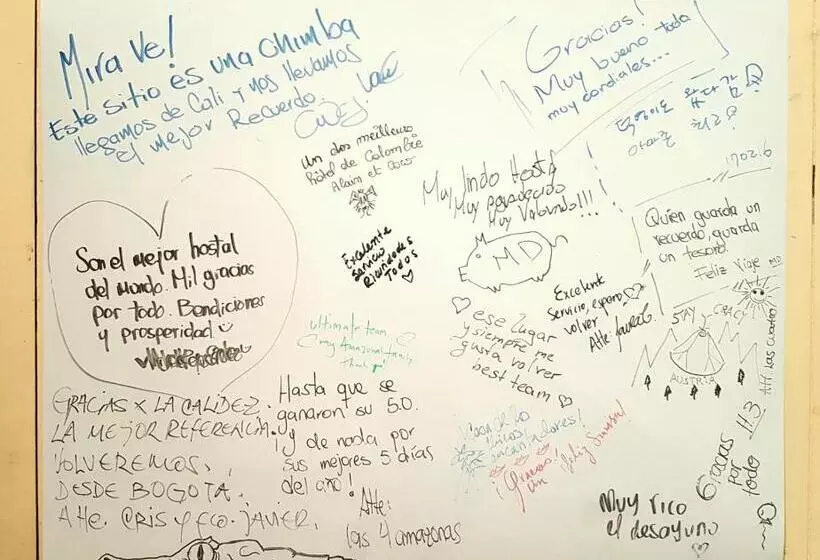 Mira Ve!
Este sitio es una chimba
llegamos de Cali y nos llevamos
el mejor Recuerdo.
Gracias!
Muy bueno toda
muy cordiales...
1702.6
Un dos meilleurs
hôtel de Colombie
Alain et Coco
Muy lindo Hostal
Muy parecido
Muy Valorado!!!
MD
Quien guarda un
recuerdo, guarda
un tesoro.
Feliz Viaje MD
Son el mejor hostal
del mundo. Mil gracias
por todo. Bendiciones
y prosperidad
Excelente
Servicio
Todos
Excelente
servicio, espero
volver
Atte:
ese lugar
y siempre me
gusta volver
best team
STAY CRAZY
AUSTRIA
Att. Las cuatro
ultimate team
my Amazonas family
GRACIAS X LA CALIDEZ.
LA MEJOR REFERENCIA.
VOLVEREMOS.
DESDE BOGOTA.
Atte. CRIS y FCO. JAVIER.
Hasta que se
ganaron su 5.0.
¡y de nada por
sus mejores 5 días
del año!
Atte:
las 4 amazonas
encantadores!
¡Gracias!
un feliz
Gracias
por
todo
H3
Muy rico
el desayuno